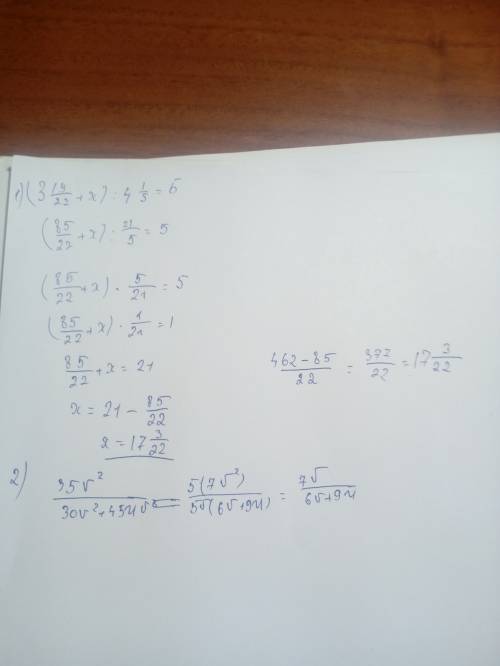 1) (3 19/22 + x) : 4 1/5 = 5
(85/22 + x) : 21/5 = 5
(85/22 + x) · 5/21 = 5
(85/22 + x) · 1/21 = 1
85/22 + x = 21
x = 21 - 85/22
x = 17 3/22
(462 - 85)/22 = 377/22 = 17 3/22
2) 35v²/(30v² + 45uv) = 5(7v²)/5v(6v + 9u) = 7v/(6v + 9u)